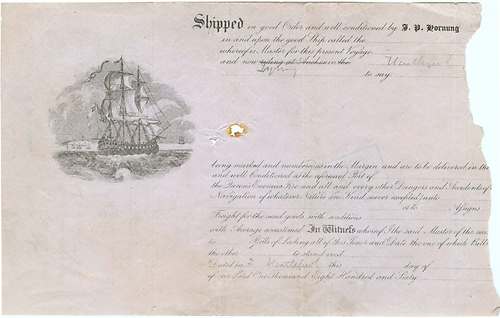 Shipped in good Order and well conditioned by J. P. Hornung
in and upon the good Ship called the
whereof is Master for this present Voyage
and now riding at Anchor in the
Laying
to say
being marked and numbered as in the Margin and are to be delivered in the
and well Conditioned at the aforesaid Port of
the Queens Enemies Fire and all and every other Dangers and Accidents of
Navigation of whatever Nature or Kind never excepted unto
or to Assigns
Freight for the said goods with
with Average accustomed In Witness whereof I the said Master of the
to Bills of Lading all of this Tenor and Date the one of which Bills
the other to stand void
Dated in this day of
of our Lord One thousand Eight Hundred and Sixty